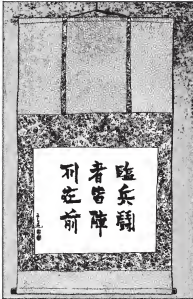 臨兵鬪
者皆陣
列在前